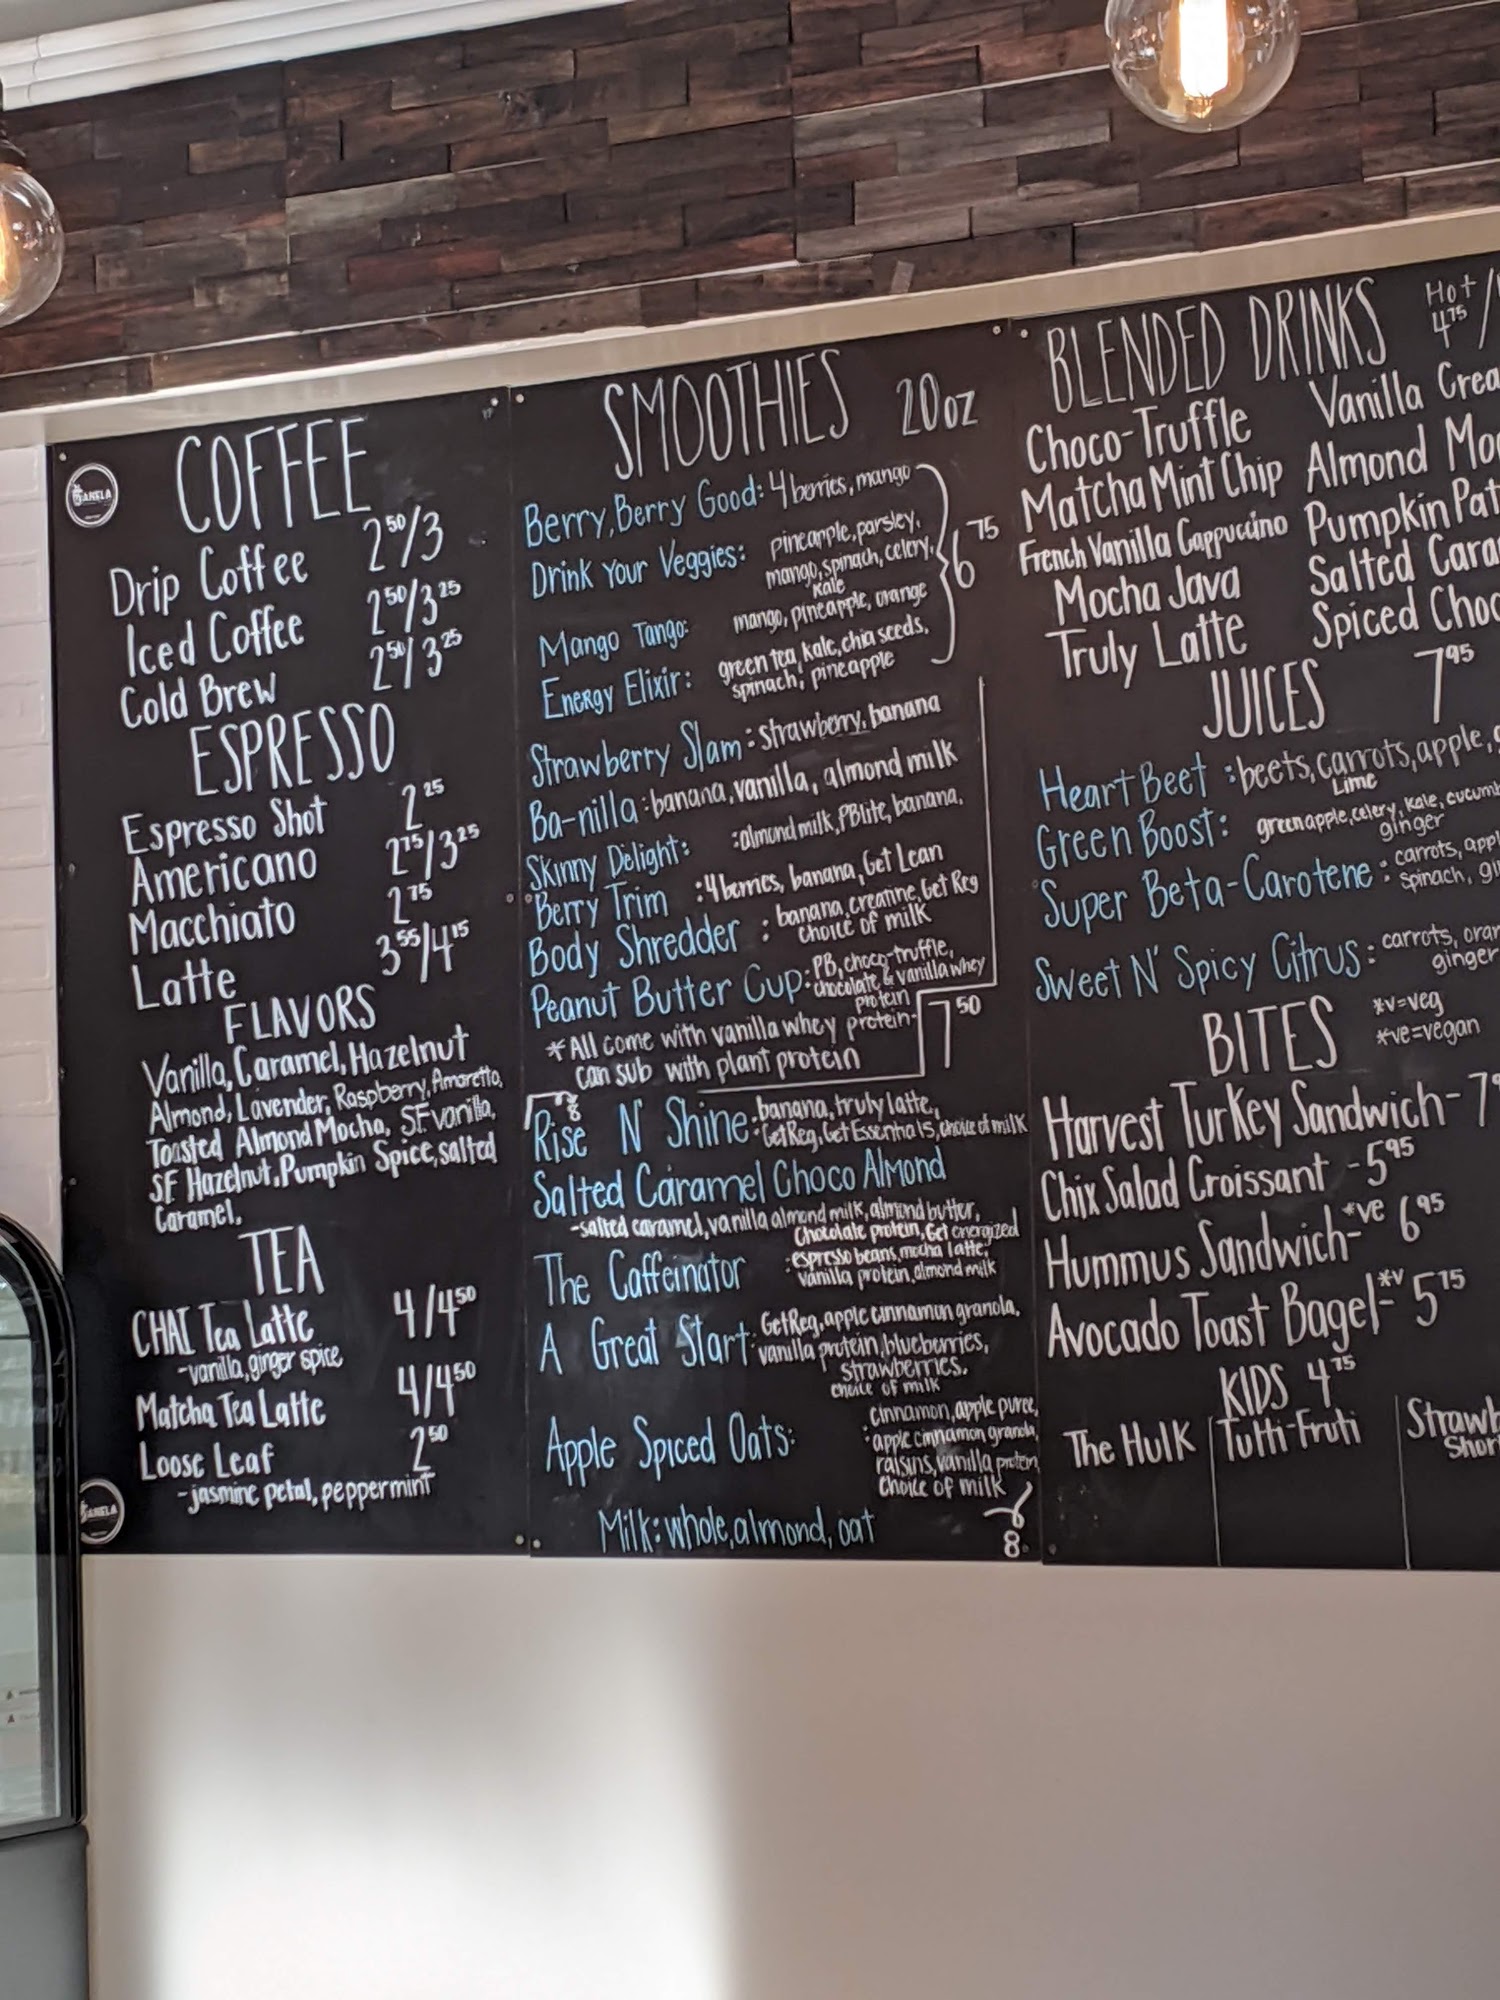 COFFEE
Drip Coffee 2⁵⁰/3
Iced Coffee 2⁵⁰/3²⁵
Cold Brew 2⁵⁰/3²⁵
ESPRESSO
Espresso Shot 2²⁵
Americano 2⁷⁵/3²⁵
Macchiato 2⁷⁵
Latte 3⁵⁵/4¹⁵
FLAVORS
Vanilla, Caramel, Hazelnut
Almond, Lavender, Raspberry, Amaretto,
Toasted Almond Mocha, SF vanilla,
SF Hazelnut, Pumpkin Spice, salted
Caramel,
TEA
CHAI Tea Latte 4/4⁵⁰
-vanilla, ginger spice
Matcha Tea Latte 4/4⁵⁰
Loose Leaf 2⁵⁰
-jasmine petal, peppermint
SMOOTHIES 20oz
Berry, Berry Good: 4 berries, mango
Drink Your Veggies: pineapple, parsley,
mango, spinach, celery,
kale
6⁷⁵
Mango Tango: mango, pineapple, orange
Energy Elixir: green tea, kale, chia seeds,
spinach, pineapple
Strawberry Slam: strawberry, banana
Ba-nilla: banana, vanilla, almond milk
Skinny Delight: :almond milk, PBlite, banana,
Berry Trim :4 berries, banana, Get Lean
Body Shredder : banana, creatine, Get Reg
choice of milk
Peanut Butter Cup: PB, choco-truffle,
chocolate & vanilla whey
protein
*All come with vanilla whey protein-
can sub with plant protein
7⁵⁰
8
Rise N' Shine: banana, truly latte,
GetReg, Get Essentials, choice of milk
Salted Caramel Choco Almond
-salted caramel, vanilla almond milk, almond butter,
Chocolate protein, Get energized
The Caffeinator :espresso beans, mocha latte,
vanilla protein, almond milk
A Great Start: GetReg, apple cinnamon granola,
vanilla protein, blueberries,
strawberries.
choice of milk
Apple Spiced Oats: cinnamon, apple puree,
apple cinnamon granola,
raisins, vanilla protein,
choice of milk
Milk: whole, almond, oat
8
BLENDED DRINKS Hot /
4⁷⁵
Choco-Truffle Vanilla Crea
Matcha Mint Chip Almond Mo
French Vanilla Cappuccino Pumpkin Pat
Mocha Java Salted Cara
Truly Latte Spiced Choc
JUICES 7⁹⁵
Heart Beet : beets, carrots, apple,
Lime
Green Boost: green apple, celery, kale, cucumb
ginger
Super Beta-Carotene: carrots, appl
spinach, gi
Sweet N' Spicy Citrus: carrots, oran
ginger
BITES *v=veg
*ve=vegan
Harvest Turkey Sandwich- 7
Chix Salad Croissant -5⁹⁵
Hummus Sandwich-*ve 6⁹⁵
Avocado Toast Bagel-*v 5⁷⁵
KIDS 4⁷⁵
The Hulk Tutti-Fruti Strawb
Shor